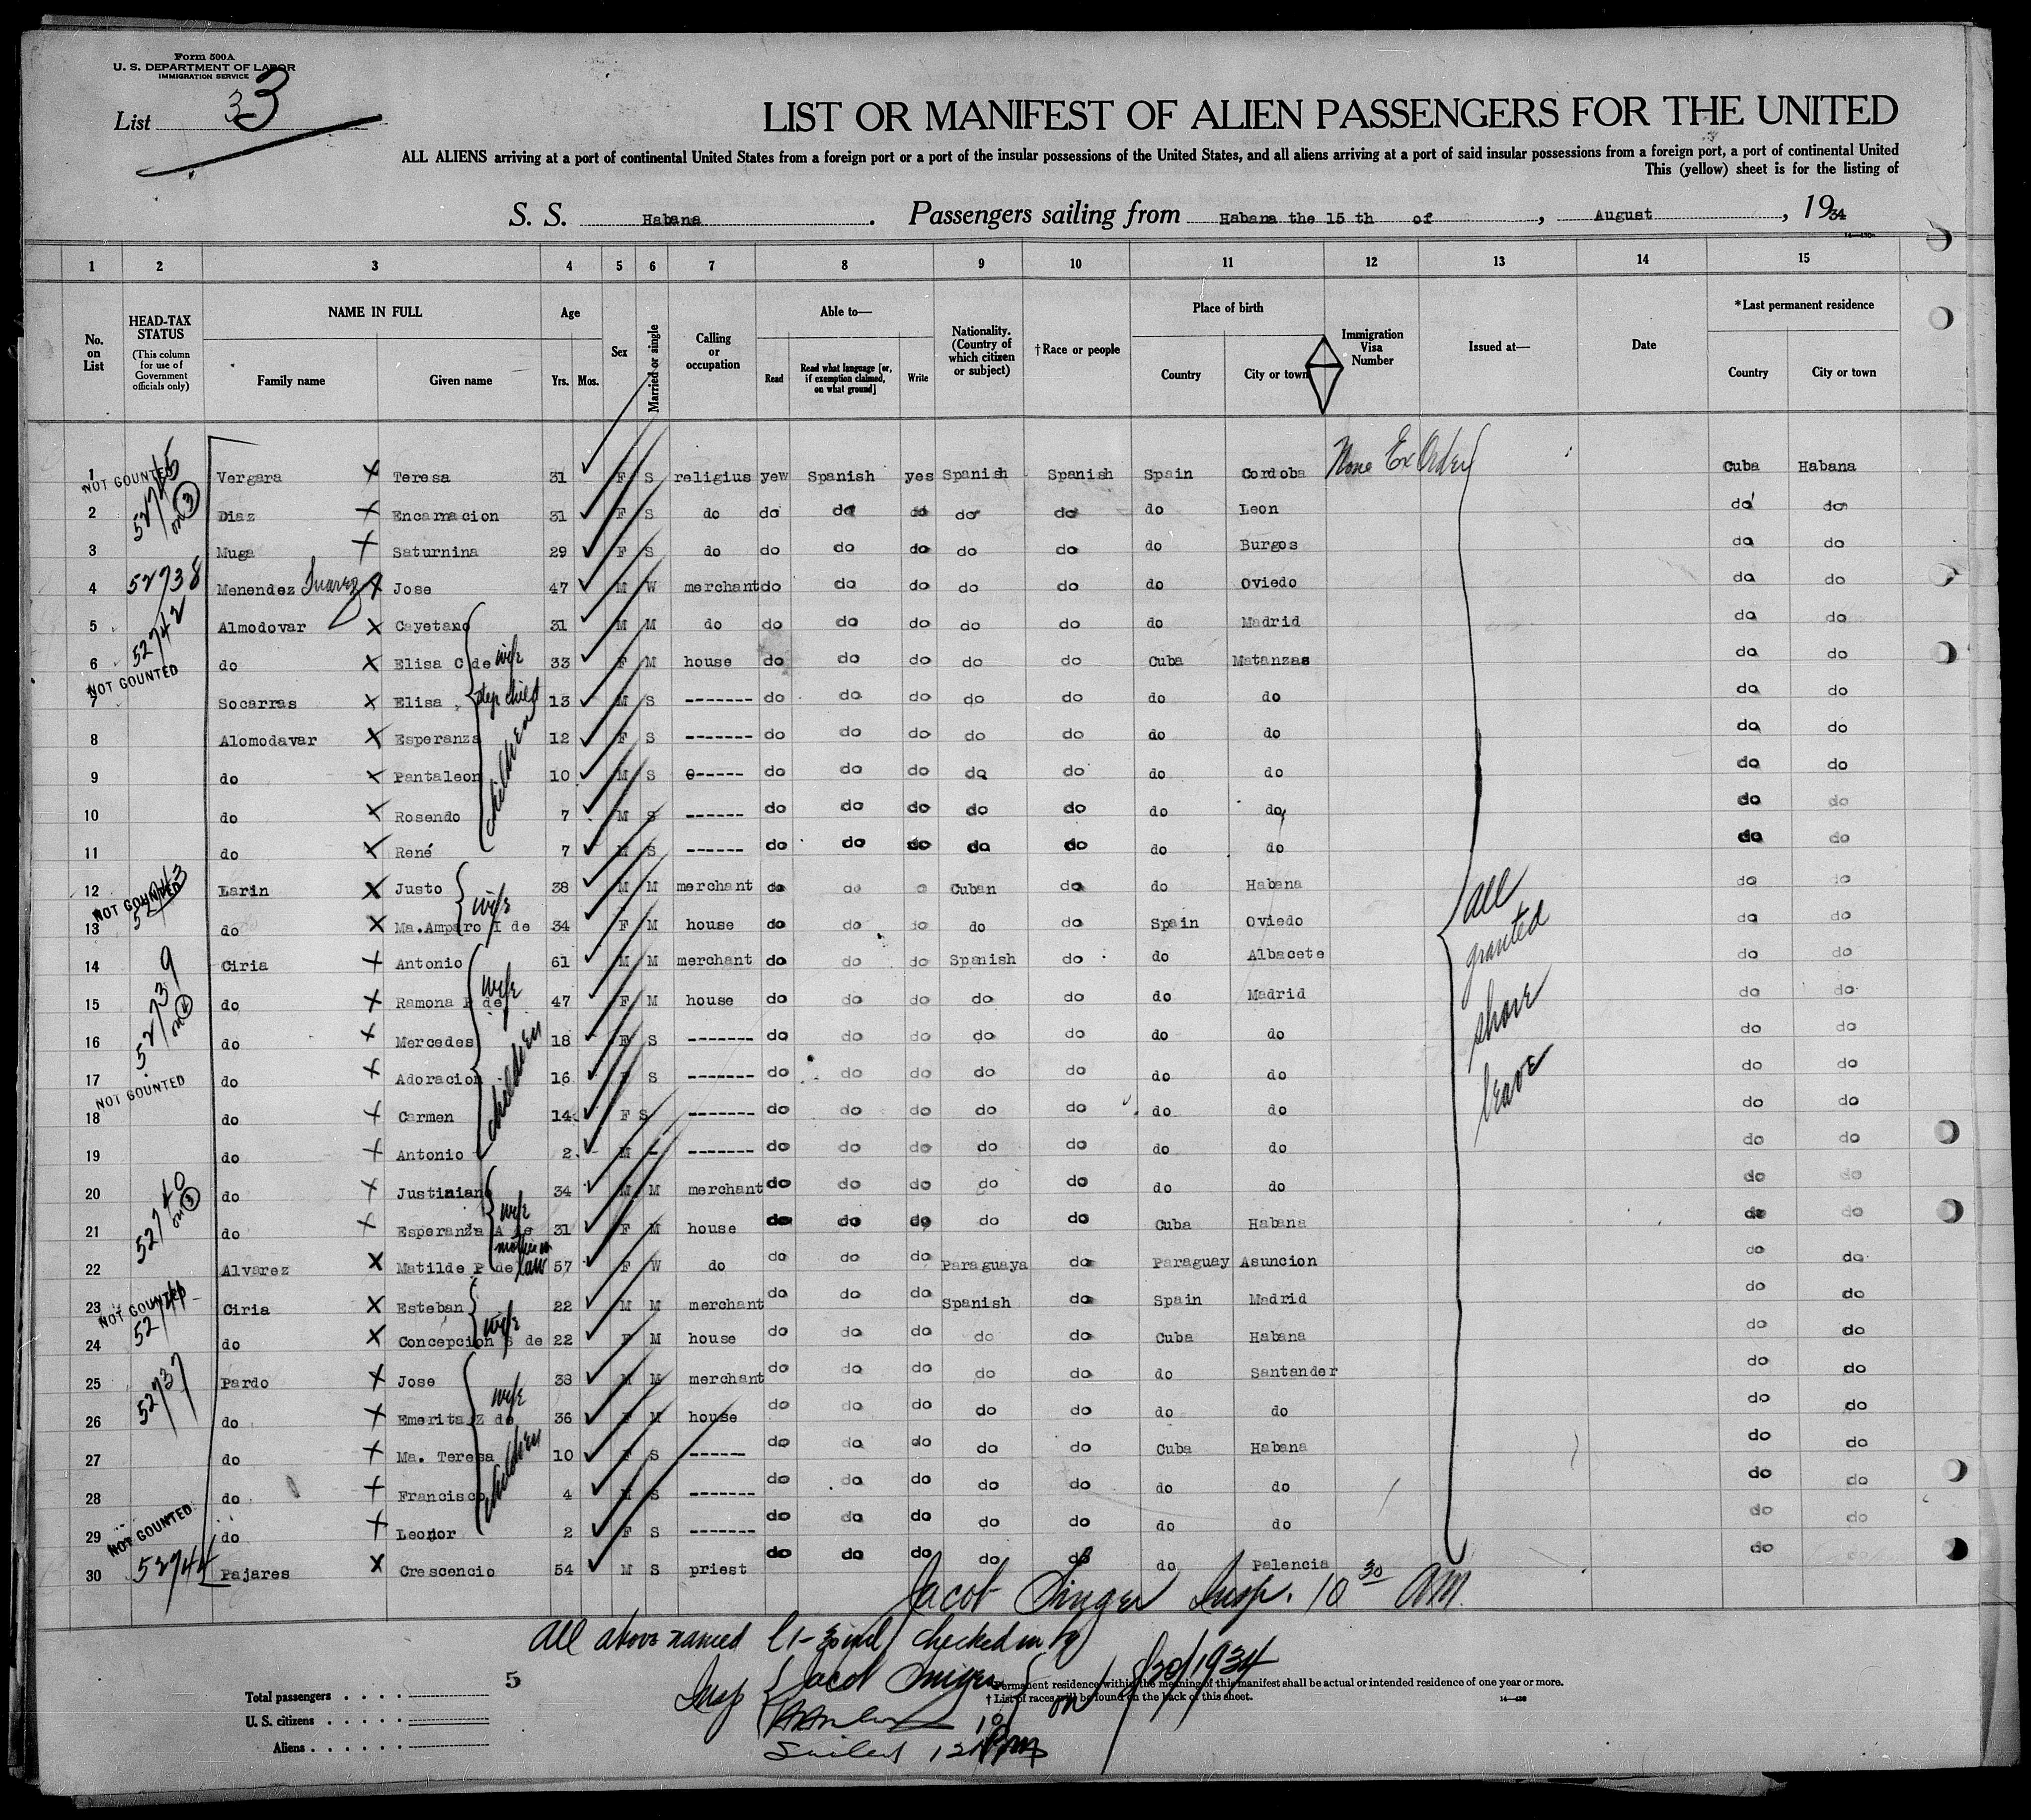 Form 500A
U. S. DEPARTMENT OF LABOR
IMMIGRATION SERVICE
List 33
LIST OR MANIFEST OF ALIEN PASSENGERS FOR THE UNITED
ALL ALIENS arriving at a port of continental United States from a foreign port or a port of the insular possessions of the United States, and all aliens arriving at a port of said insular possessions from a foreign port, a port of continental United
This (yellow) sheet is for the listing of
S. S. Habana. Passengers sailing from Habana the 15 th of, August, 1934
1 2 3 4 5 6 7 8 9 10 11 12 13 14 15
No. on List
HEAD-TAX STATUS (This column for use of Government officials only)
NAME IN FULL Family name Given name
Age Yrs. Mos.
Sex
Married or single
Calling or occupation
Able to— Read Read what language [or, if exemption claimed, on what ground] Write
Nationality. (Country of which citizen or subject)
†Race or people
Place of birth Country City or town
Immigration Visa Number
Issued at—
Date
*Last permanent residence Country City or town
1 NOT COUNTED 52745 on 3 Vergara X Teresa 31 F S religius yew Spanish yes Spanish Spanish Spain Cordoba None Ex Order Cuba Habana
2 Diaz X Encarnacion 31 F S do do do do do do do Leon do do
3 Muga X Saturnina 29 F S do do do do do do do Burgos do do
4 52738 Menendez Suarez X Jose 47 M W merchant do do do do do do Oviedo do do
5 52742 Almodovar X Cayetano 31 M M do do do do do do do Madrid do do
6 do X Elisa C de wife 33 F M house do do do do do Cuba Matanzas do do
7 NOT COUNTED Socarras X Elisa step child 13 M S ------- do do do do do do do do do
8 Alomodavar X Esperanza children 12 F S ------- do do do do do do do do do
9 do X Pantaleon 10 M S 0----- do do do do do do do do do
10 do X Rosendo 7 M S ------ do do do do do do do do do
11 do X René 7 M S ------ do do do do do do do do do
12 NOT COUNTED 52743 Larin X Justo 38 M M merchant do do o Cuban do do Habana do do
13 do X Ma.Amparo I de wife 34 F M house do do do do do Spain Oviedo do do
14 Ciria X Antonio 61 M M merchant do do do Spanish do do Albacete do do
15 52739 on do X Ramona P de wife 47 F M house do do do do do do Madrid do do
16 do X Mercedes children 18 F S ------- do do do do do do do do do
17 NOT COUNTED do X Adoracion 16 F S ------- do do do do do do do do do
18 do X Carmen 14 F S ------- do do do do do do do do do
19 do X Antonio 2 M - ------- do do do do do do do do do
20 52740 on 3 do X Justiniano 34 M M merchant do do do do do do do do do
21 do X Esperanza A de wife 31 F M house do do do do do Cuba Habana do do
22 Alvarez X Matilde P de mother in law 57 F W do do do do Paraguaya do Paraguay Asuncion do do
23 NOT COUNTED 52741 Ciria X Esteban 22 M M merchant do do do Spanish do Spain Madrid do do
24 do X Concepcion S de wife 22 F M house do do do do do Cuba Habana do do
25 52737 Pardo X Jose 38 M M merchant do do do do do do Santander do do
26 do X Emerita Z de wife 36 F M house do do do do do do do do do
27 do X Ma. Teresa children 10 F S ------ do do do do do Cuba Habana do do
28 do X Francisco 4 M S ------- do do do do do do do do do
29 NOT COUNTED do X Leonor 2 F S ------- do do do do do do do do do
30 52744 Pajares X Crescencio 54 M S priest do do do do do do Palencia do
All granted shore leave
Jacob Singer Insp. 10 30 AM.
All above named (1-30 incl) checked in by
Insp Jacob Singer on 8/20/1934
Sailed 12
5
Total passengers
U.S. citizens
Aliens
*Permanent residence within the meaning of this manifest shall be actual or intended residence of one year or more.
† List of races will be found on the back of this sheet.
14—430